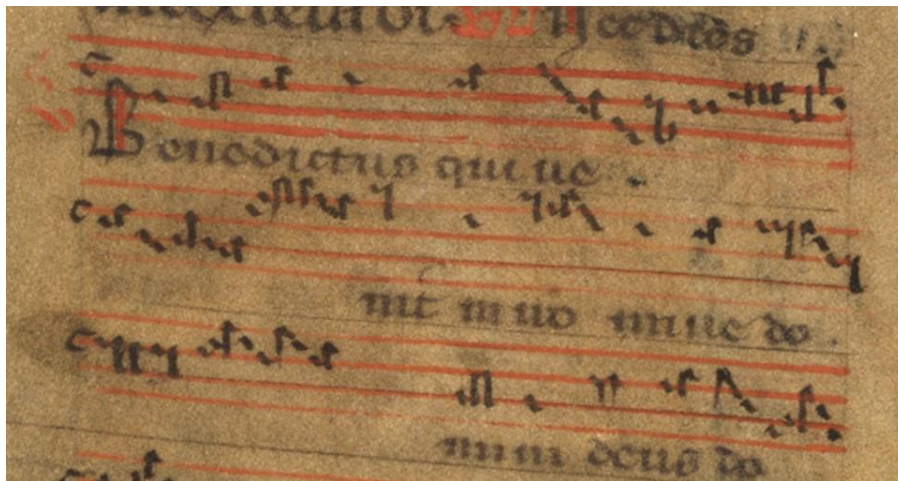 Benedictus qui ue .
nit in no mine do .
mini deus do